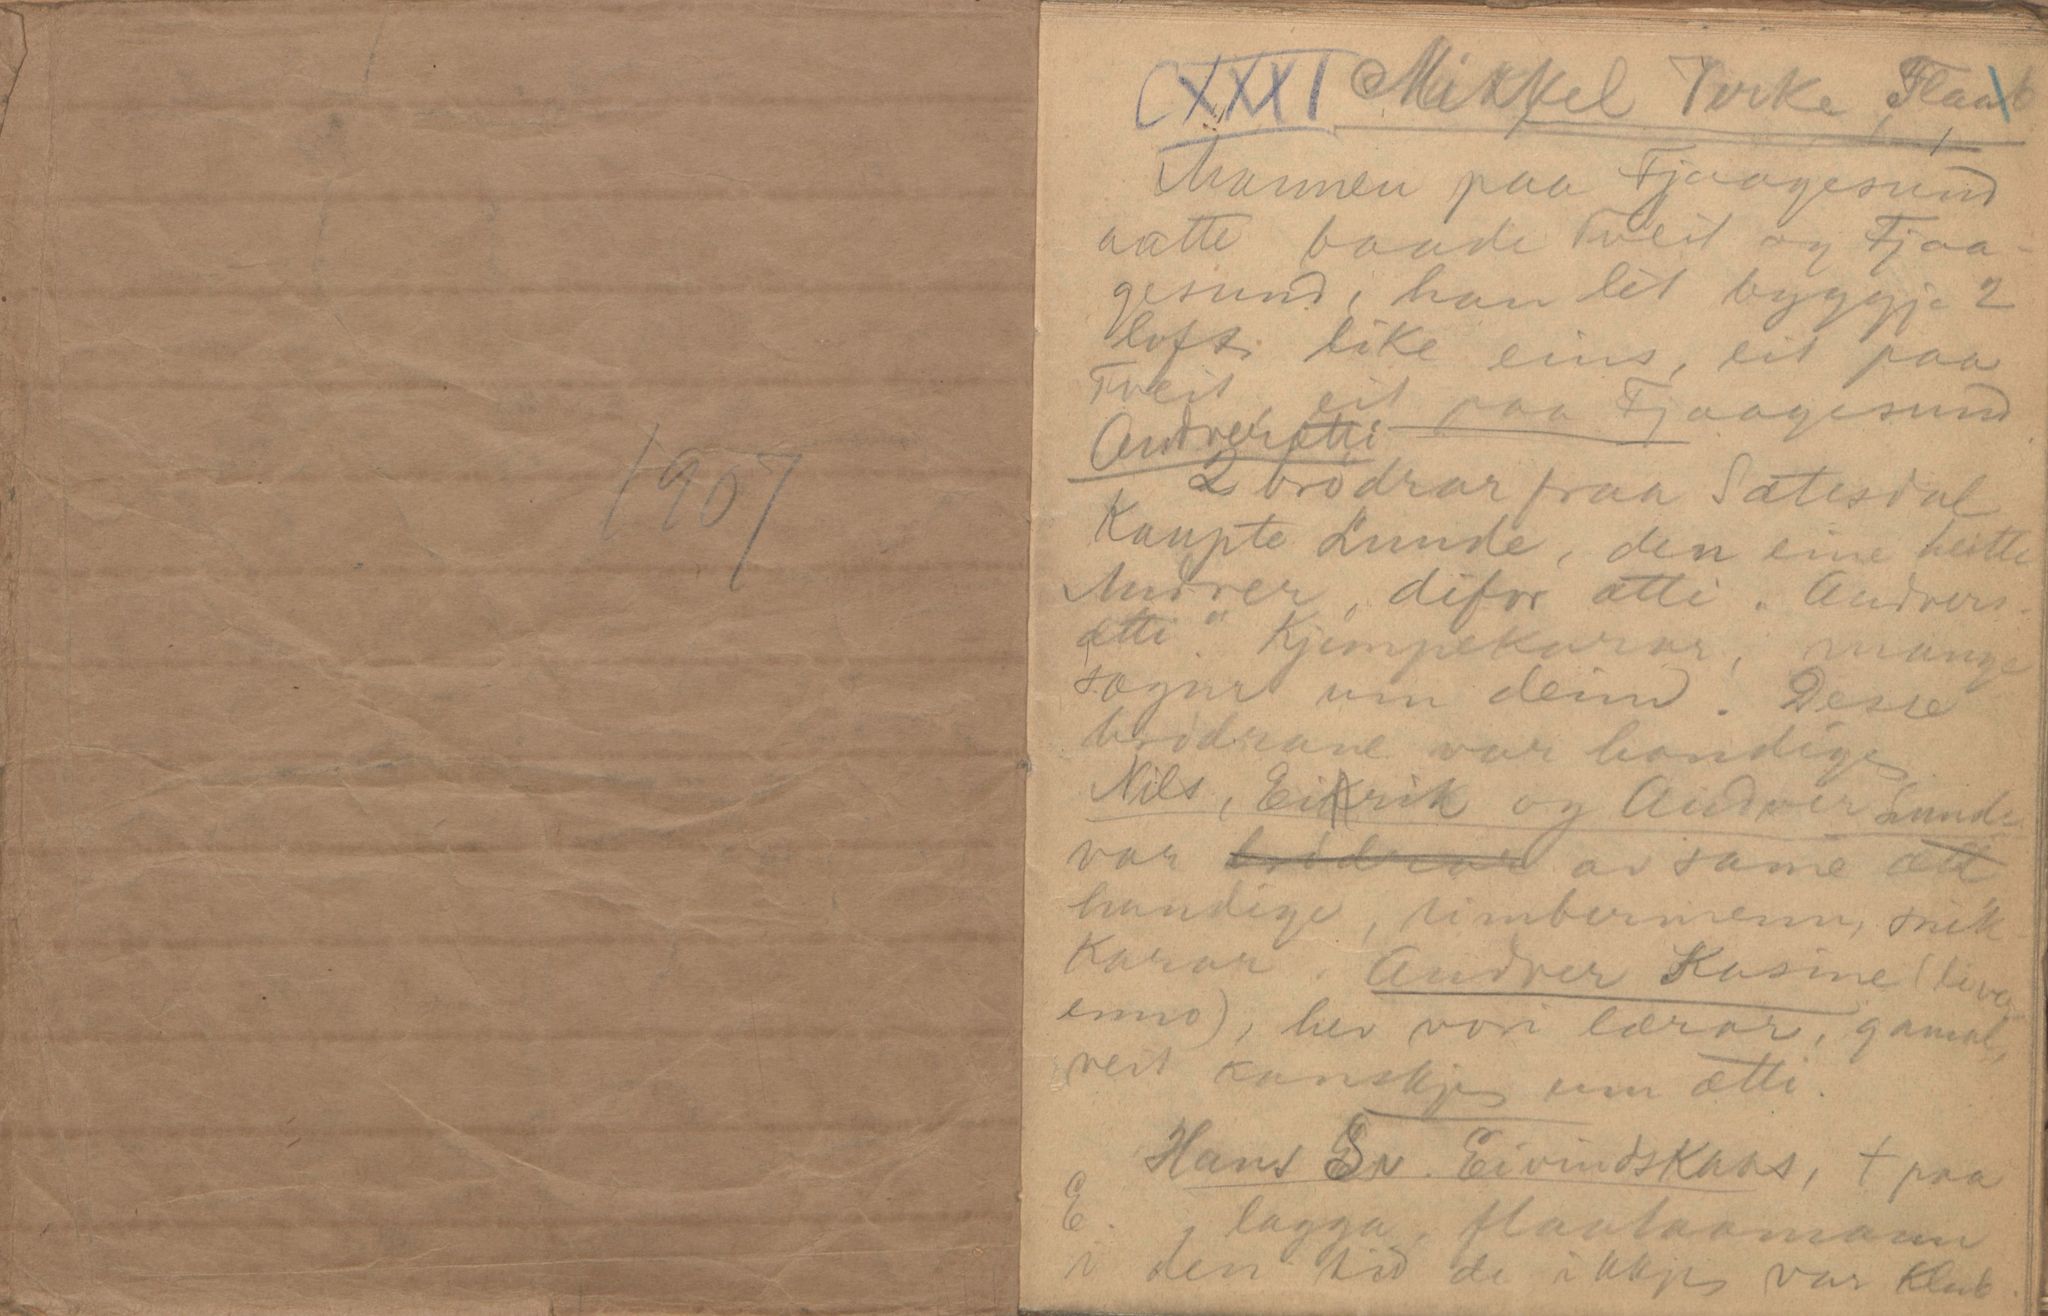 1907
CXXXI Mikkel Virke Flaab
Mannen paa Fjaagesund
aatte baade Tveit og Fjaa-
gesund, han let byggje 2
loft like eins, eit paa
Tveit, eit paa Fjaagesund
Andverætti
2 brödrar fraa Sætesdal
kaupte Lunde, den eine heitte
Andver, difor ætti "Andvers-
ætti". Kjempekarar, mange
sogur um deim. Desse
brödrane var hondige
Nils, Eirik og Andver Lunde
var brödrar av same ætt
hundige, timbermenn, snik-
karar. Andver Kasine (liver
enno), hev vori lærar, gamal,
veit kanskje um ætti.
Hans Ev. Eivindskaas, + paa
E., lagga, flaataamann
i den tid de ikkje var klub